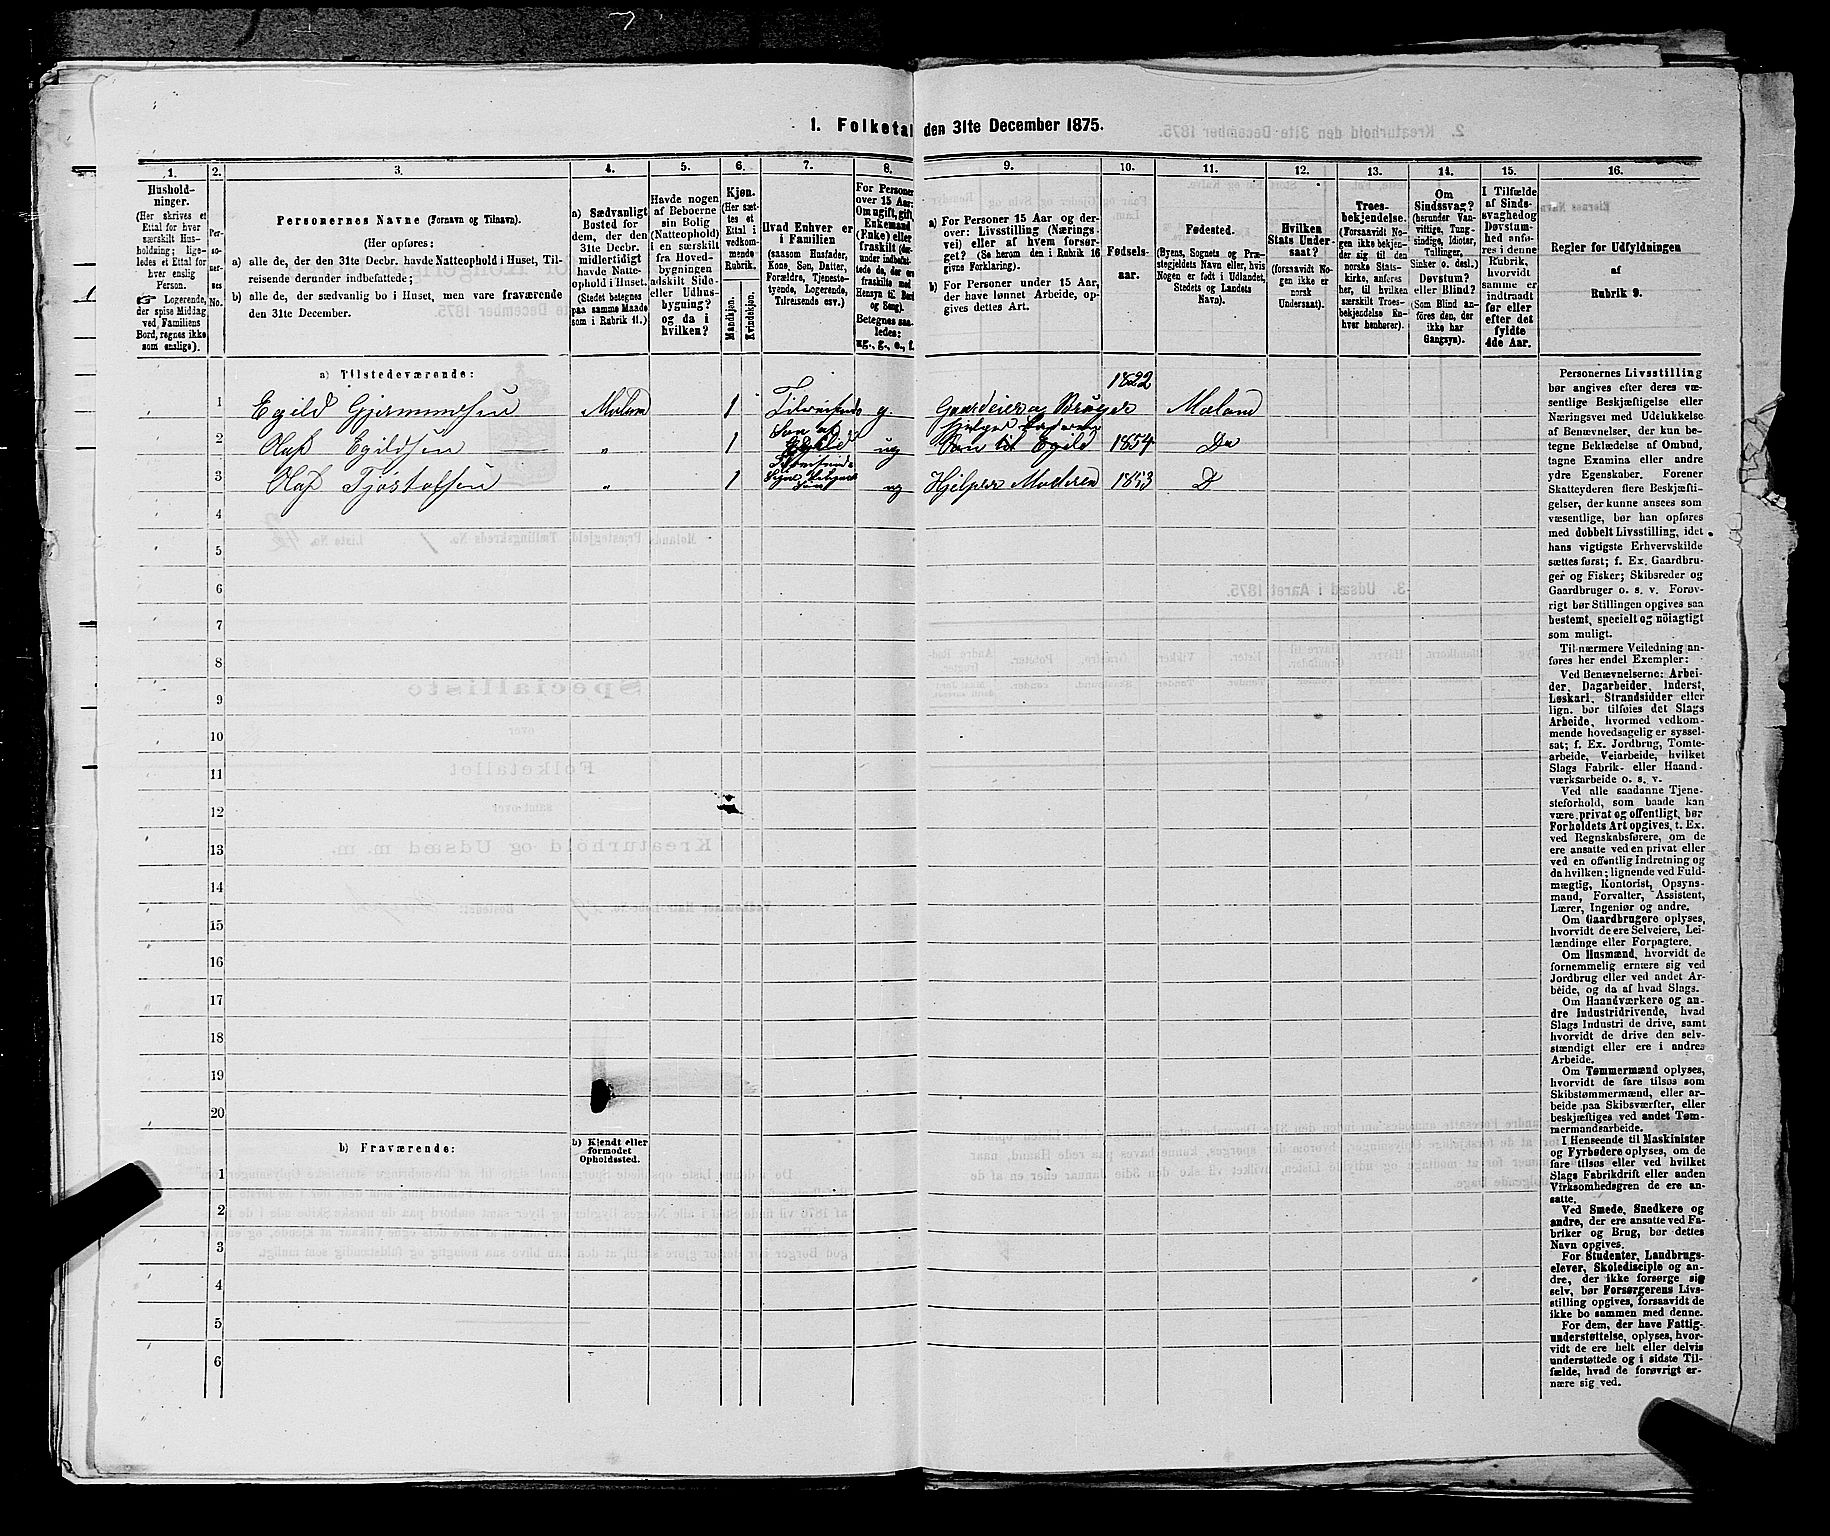 1. Folketal den 31te December 1875.
1.
Hushold-
ninger.
(Her skrives et
Ettal for hver
særskilt Hus-
holdning; lige-
ledes et Ettal for
hver enslig
Person.
☞ Logerende,
der spise Middag
ved Familiens
Bord, regnes ikke
som enslige).
2.
Per-
so-
ner-
nes
No.
3.
Personernes Navne (Fornavn og Tilnavn).
(Her opføres:
a) alle de, der den 31te Decbr. havde Natteophold i Huset, Til-
reisende derunder indbefattede;
b) alle de, der sædvanlig bo i Huset, men vare fraværende
den 31te December.
4.
a) Sædvanligt
Bosted for
dem, der den
31te Decbr.
midlertidigt
havde Natte-
ophold i Huset.
(Stedet betegnes
paa samme Maade
som i Rubrik 11.)
5.
Havde nogen
af Beboerne
sin Bolig
(Natteophold)
i en særskilt
fra Hoved-
bygningen
adskilt Side-
eller Udhus-
bygning?
og da i
hvilken?
6.
Kjøn.
(Her sæt-
tes et
Ettal i
vedkom-
mende
Rubrik.
Mandkjøn.
Kvindekjøn.
7.
Hvad Enhver er
i Familien
(saasom Husfader,
Kone, Søn, Datter,
Forældre, Tjeneste-
tyende, Logerende,
Tilreisende osv.)
8.
For Personer
over 15 Aar:
Om ugift, gift,
Enkemand
(Enke) eller
fraskilt
Betegnes saa-
ledes:
ug., g., e., f.
9.
a) For Personer 15 Aar og der-
over: Livsstilling (Nærings-
vei) eller af hvem forsør-
get? (Se herom den i Rubrik 16
givne Forklaring).
b) For Personer under 15 Aar,
der have lønnet Arbeide, op-
gives dettes Art.
10.
Fødsels-
aar.
11.
Fødested.
(Byens, Sognets og Præ-
stegjeldets Navn eller, hvis
Nogen er født i Udlandet,
Stedets og Landets
Navn).
12.
Hvilken
Stats Under-
saat?
(forsaavidt No-
gen ikke er
norsk
Undersaat).
13.
Troes-
bekjendelse.
(Forsaavidt No-
gen ikke bekjen-
der sig til den
norske Stats-
kirke, anføres
her, til hvilken
særskilt Troes-
bekjendelse En-
hver henhører).
14.
Om
Sindssvag?
(herunder Van-
vittige, Tung-
sindige, Idioter,
Tullinger,
Sinker o. desl.)
Døvstum?
eller Blind?
(Som Blind an-
føres den, der
ikke har
Gangsyn).
15.
I Tilfælde
af Sinds-
svaghed og
Døvstum-
hed anfø-
res i denne
Rubrik,
hvorvidt
samme er
indtraadt
før eller
efter det
fyldte
4de Aar.
16.
Regler for Udfyldningen
af
Rubrik 9.
a) Tilstedeværende:
1 Egild Gjermundsen Moland 1 Tilreisende g. Gaardeier og Bruger 1822 Moland
2 Olaf Egildsen " 1 Søn af Egild ug Hjelper Faderen Søn til Egild 1854 Do
3 Olaf Tjøstolfsen " 1 ug Hjelper Moderen 1853 D
4
5
6
7
8
9
10
11
12
13
14
15
16
17
18
19
20
b) Fraværende:
b) Kjendt eller
formodet
Opholdssted.
1
2
3
4
5
6
Personernes Livsstilling
bør angives efter deres væ-
sentlige Beskjæftigelse eller
Næringsvei med Udelukkelse
af Benævnelser, der kun be-
tegne Beklædelse af Ombud,
tagne Examina eller andre
ydre Egenskaber. Forener
Skatteyderen flere Beskjæfti-
gelser, der kunne ansees som
væsentlige, bør han opføres
med dobbelt Livsstilling, idet
hans vigtigste Erhvervskilde
sættes først; f. Ex. Gaardbru-
ger og Fisker; Skibsreder og
Gaardbruger o. s. v. Forøv-
rigt bør Stillingen opgives saa
bestemt, specielt og nöiagtigt
som muligt.
Til nærmere Veiledning an-
føres her endel Exempler:
Ved Benævnelserne: Arbei-
der, Dagarbeider, Inderst,
Løskarl, Strandsidder eller
lign. bør tilføies det Slags
Arbeide, hvormed vedkom-
mende hovedsagelig er syssel-
sat; f. Ex. Jordbrug, Tomte-
arbeide, Veiarbeide, hvilket
Slags Fabrik- eller Haand-
værksarbeide o. s. v.
Ved alle saadanne Tjene-
steforhold, som baade kan
være privat og offentligt, bør
Forholdets Art opgives, t. Ex.
ved Regnskabsførere, om de
ere ansatte ved en privat eller
ved en offentlig Indretning og
da hvilken; lignende ved Fuld-
mægtig, Kontorist, Opsyns-
mand, Forvalter, Assistent,
Lærer, Ingeniør og andre.
Om Gaardbrugere oplyses,
hvorvidt de ere Selveiere, Lei-
lændinge eller Forpagtere.
Om Husmænd, hvorvidt de
fornemmelig ernære sig ved
Jordbrug eller ved andet Ar-
beide, og da af hvad Slags.
Om Haandværkere og an-
dre Industridrivende, hvad
Slags Industri de drive, samt
hvorvidt de drive den selv-
stændigt eller ere i andres
Arbeide.
Om Tømmermænd oplyses,
hvorvidt de fare tilsøs som
Skibstømmermænd, eller ar-
beide paa Skibsværfter, eller
beskjæftiges ved andet Tøm-
mermandsarbeide.
I Henseende til Maskinister
og Fyrbødere oplyses, om de
fare tilsøs eller ved hvilket
Slags Fabrikdrift eller anden
Virksomhedsgren de ere an-
satte.
Ved Smede, Snedkere og
andre, der ere ansatte ved Fa-
briker og Brug, bør dettes
Navn opgives.
For Studenter, Landbrugs-
elever, Skoledisciple og an-
dre, der ikke forsørge sig
selv, bør Forsørgerens Livs-
stilling opgives, forsaavidt de
ikke bo sammen med denne.
For dem, der have Fattig-
understøttelse, oplyses, hvor-
vidt de ere helt eller delvis
understøttede og i sidste Til-
fælde, hvad de forøvrigt er-
nære sig ved.